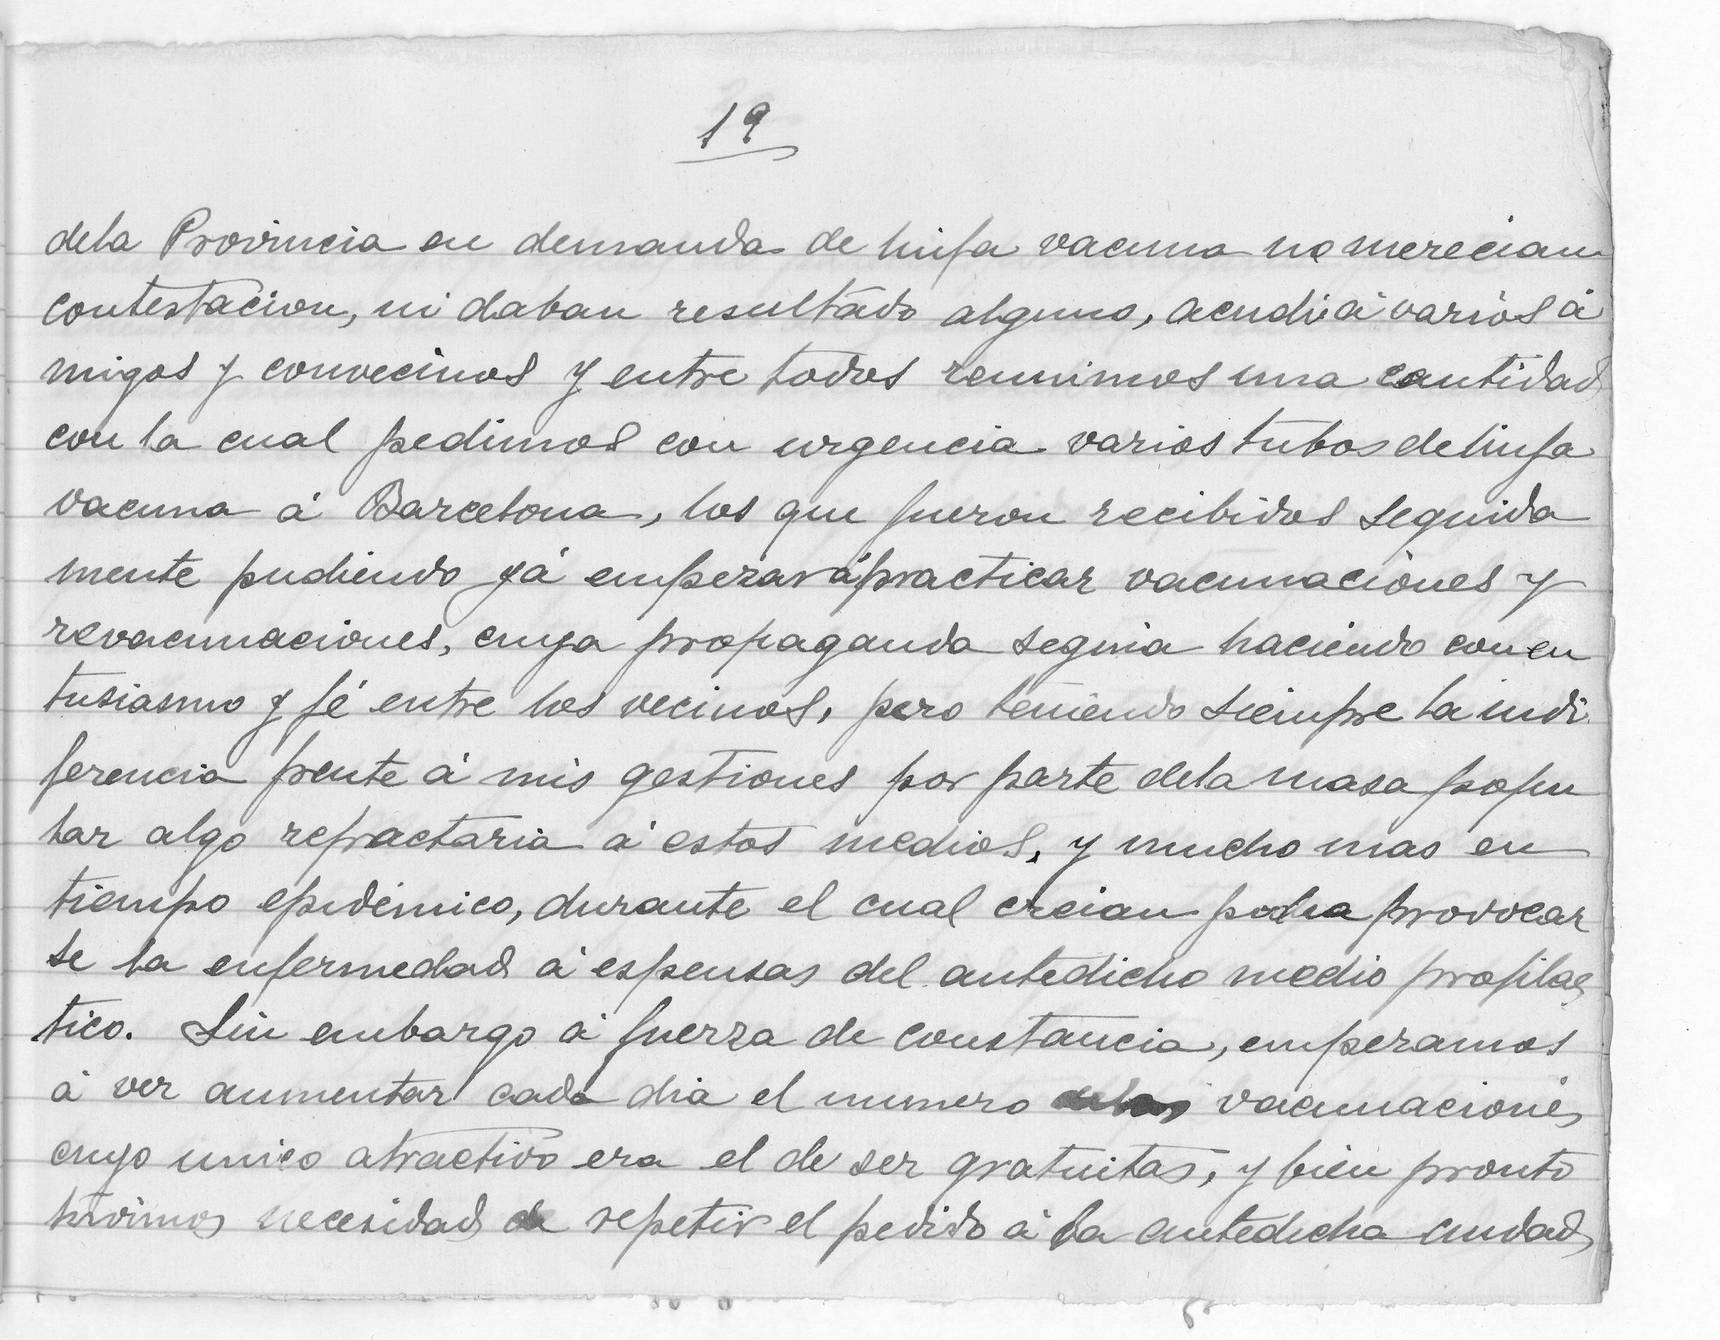 19
dela Provincia en demanda de linfa vacuna no merecian
contestacion, ni daban resultado alguno, acudi á varios á
migos y convecinos y entre todos reunimos una cantidad
con la cual pedimos con urgencia varios tubos de linfa
vacuna á Barcelona, los que fueron recibidos seguida
mente pudiendo yá empezar á practicar vacunaciones y
revacunaciones, cuya propaganda seguia haciendo con en
tusiasmo y fé entre los vecinos, pero teniendo siempre la indi
ferencia frente á mis gestiones por parte dela masa popu
lar algo refractaria á estos medios, y mucho mas en
tiempo epidémico, durante el cual creian podia provocar
se la enfermedad á espensas del antedicho medio profilac
tico. Sin embargo á fuerza de constancia, empezamos
á ver aumentar cada dia el numero vacunaciones,
cuyo unico atractivo era el de ser gratuitas, y bien pronto
tuvimos necesidad de repetir el pedido á la antedicha ciudad,